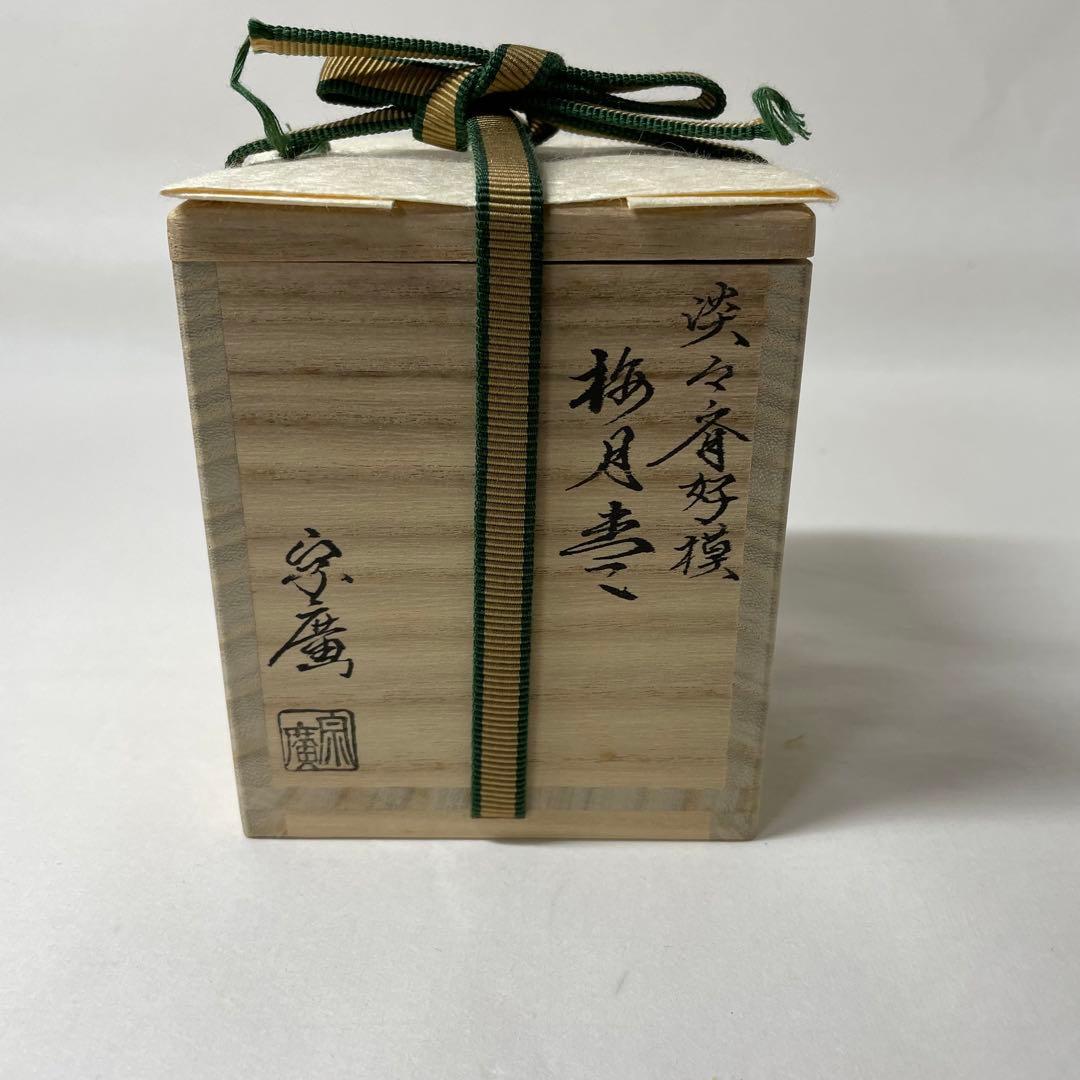 淡々斎好模
梅月棗
宗廣
宗廣